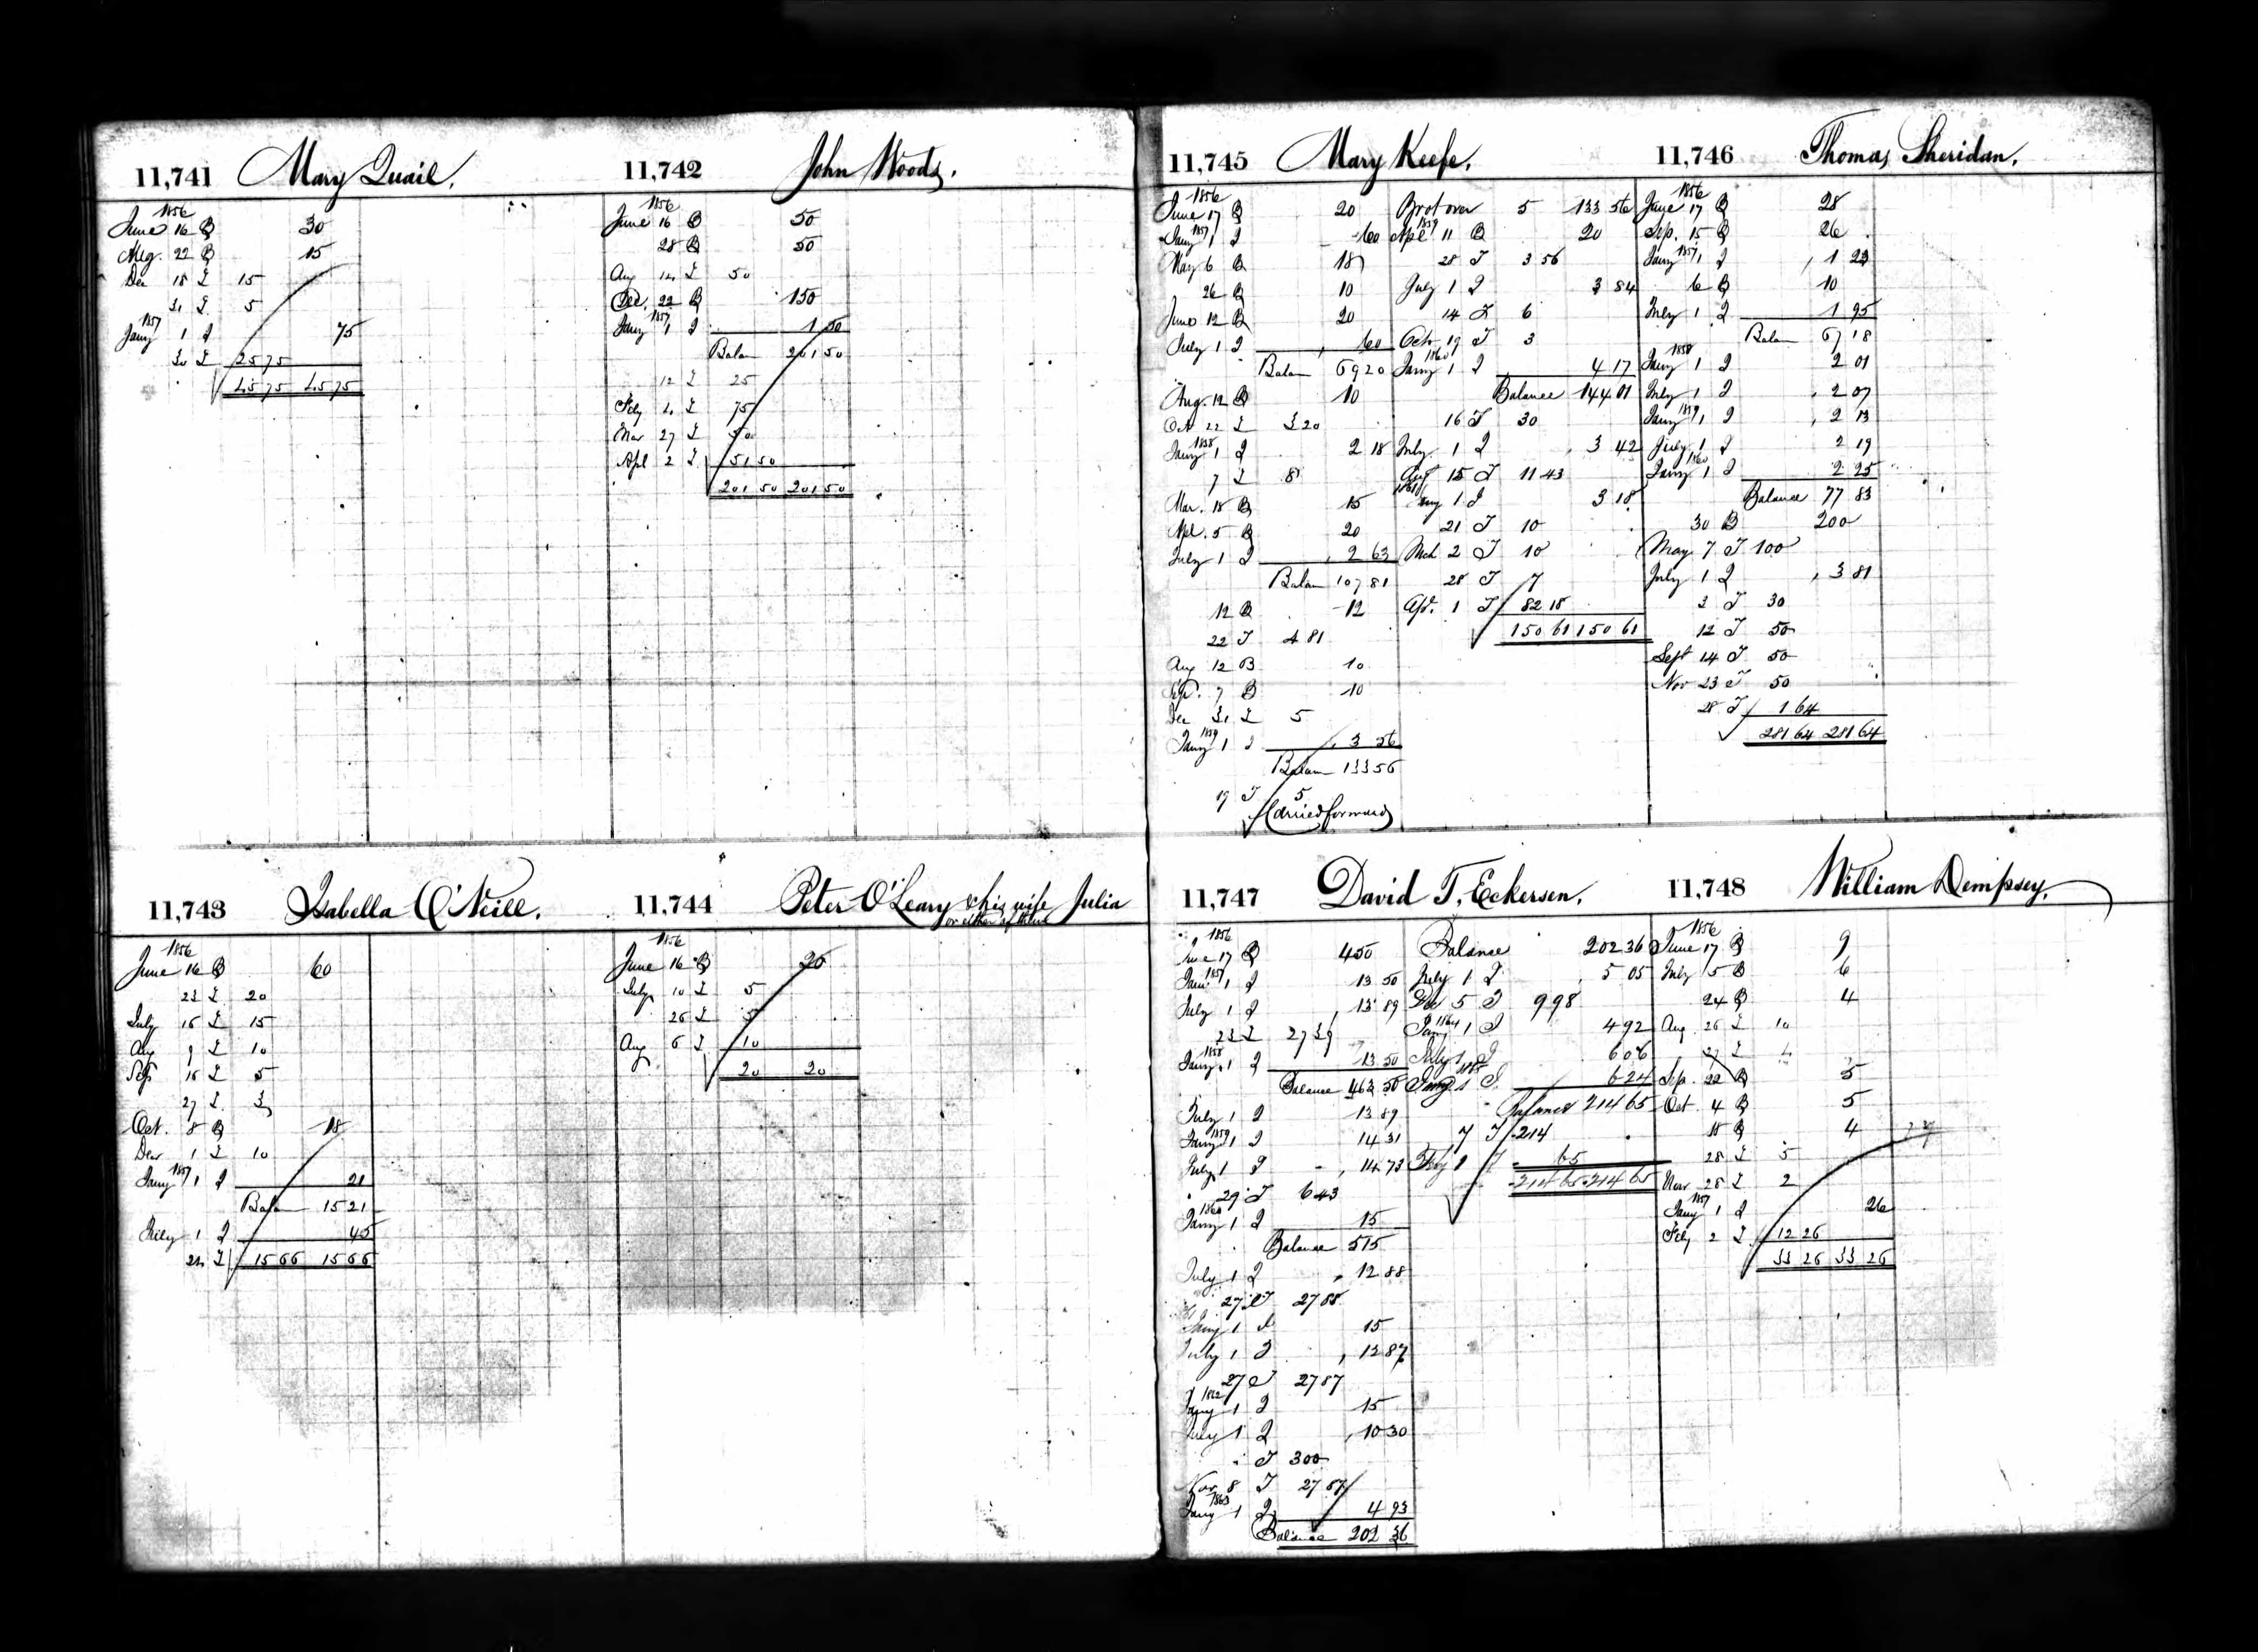 11,741 Mary Quail.
1856
June 16 B 30
Aug. 22 B 15
Dec 18 L 15
31 L 5
1857
Jany 1 I 75
30 L 25 75
45 75 45 75
11,742 John Woods.
1856
June 16 B 50
28 B 50
Aug 14 L 50
Dec. 22 B 150
1857
Jany 1 I 1 50
Balan 201 50
12 L 25
Feby 4 L 75
Mar 27 L 50
Apl 2 L 51 50
201 50 201 50
11,743 Isabella O'Neill.
1856
June 16 B 60
23 L 20
July 15 L 15
Aug 9 L 10
Sep 15 L 5
27 L 3
Oct. 8 B 18
Dec 1 L 10
1857
Jany 1 I 21
Balan 15 21
July 1 I 45
24 L 15 66 15 66
11,744 Peter O'Leary & his wife Julia
or either of them
1856
June 16 B 20
July 10 L 5
26 L 5
Aug 6 L 10
20 20
11,745 Mary Keefe.
1856
June 17 B 20
1857
Jany 1 I 60
May 6 B 18
26 B 10
June 12 B 20
July 1 I 60
Balan 69 20
Aug. 12 B 10
Oct 22 L 3 20
1858
Jany 1 I 2 18
7 L 8
Mar. 18 B 15
Apl. 5 B 20
July 1 I 2 63
Balan 107 81
12 B 12
22 T 4 81
Aug 12 B 10
Sep. 7 B 10
Dec 31 L 5
1859
Jany 1 I 3 56
Balam 133 56
19 T 5
Carried forward
Brot over 5 133 56
1859
Apl 11 B 20
28 T 3 56
July 1 I 3 84
14 T 6
Oct. 19 T 3
1860
Jany 1 I 4 17
Balance 144 01
16 T 30
July 1 I 3 42
Aug 15 T 11 43
1861
Jany 1 I 3 18
21 T 10
Mch 2 T 10
28 T 7
Apr. 1 T 82 18
150 61 150 61
11,746 Thomas Sheridan.
1856
June 17 B 28
Sep. 15 B 26
1857
Jany 1 I 1 23
6 B 10
July 1 I 1 95
Balan 67 18
1858
Jany 1 I 2 01
July 1 I 2 07
1859
Jany 1 I 2 13
July 1 I 2 19
1860
Jany 1 I 2 25
Balance 77 83
30 B 200
May 7 T 100
July 1 I 3 81
3 T 30
12 T 50
Sept 14 T 50
Nov 23 T 50
28 T 1 64
281 64 281 64
11,747 David T. Eckersen.
1856
June 17 B 450
1857
Jany 1 I 13 50
July 1 I 13 89
23 L 27 39
1858
Jany 1 I 13 50
Balance 463 50
July 1 I 13 89
1859
Jany 1 I 14 31
July 1 I 14 73
29 T 6 43
1860
Jany 1 I 15
Balance 515
July 1 I 12 88
27 T 27 88
Jany 1 I 15
July 1 I 12 87
27 T 27 87
1862
Jany 1 I 15
July 1 I 10 30
T 300
Nov 8 T 27 87
1863
Jany 1 I 4 93
Balance 202 36
Balance 202 36
July 1 I 5 05
Dec 5 T 9 98
1864
Jany 1 I 4 92
July 1 I 6 06
1865
Jany 1 I 6 24
Balance 214 65
7 T 214
Feby 8 T 65
214 65 214 65
11,748 William Dempsey.
1856
June 17 B 9
July 5 B 6
24 B 4
Aug 26 L 10
27 L 4
Sep. 22 B 5
Oct 4 B 5
18 B 4
28 L 5
Nov 28 L 2
1857
Jany 1 I 26
Feby 2 L 12 26
33 26 33 26